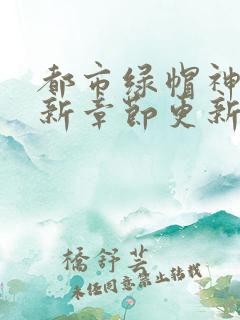 都市绿帽神
新章节更新
橘舒芸
未经同意禁止转载